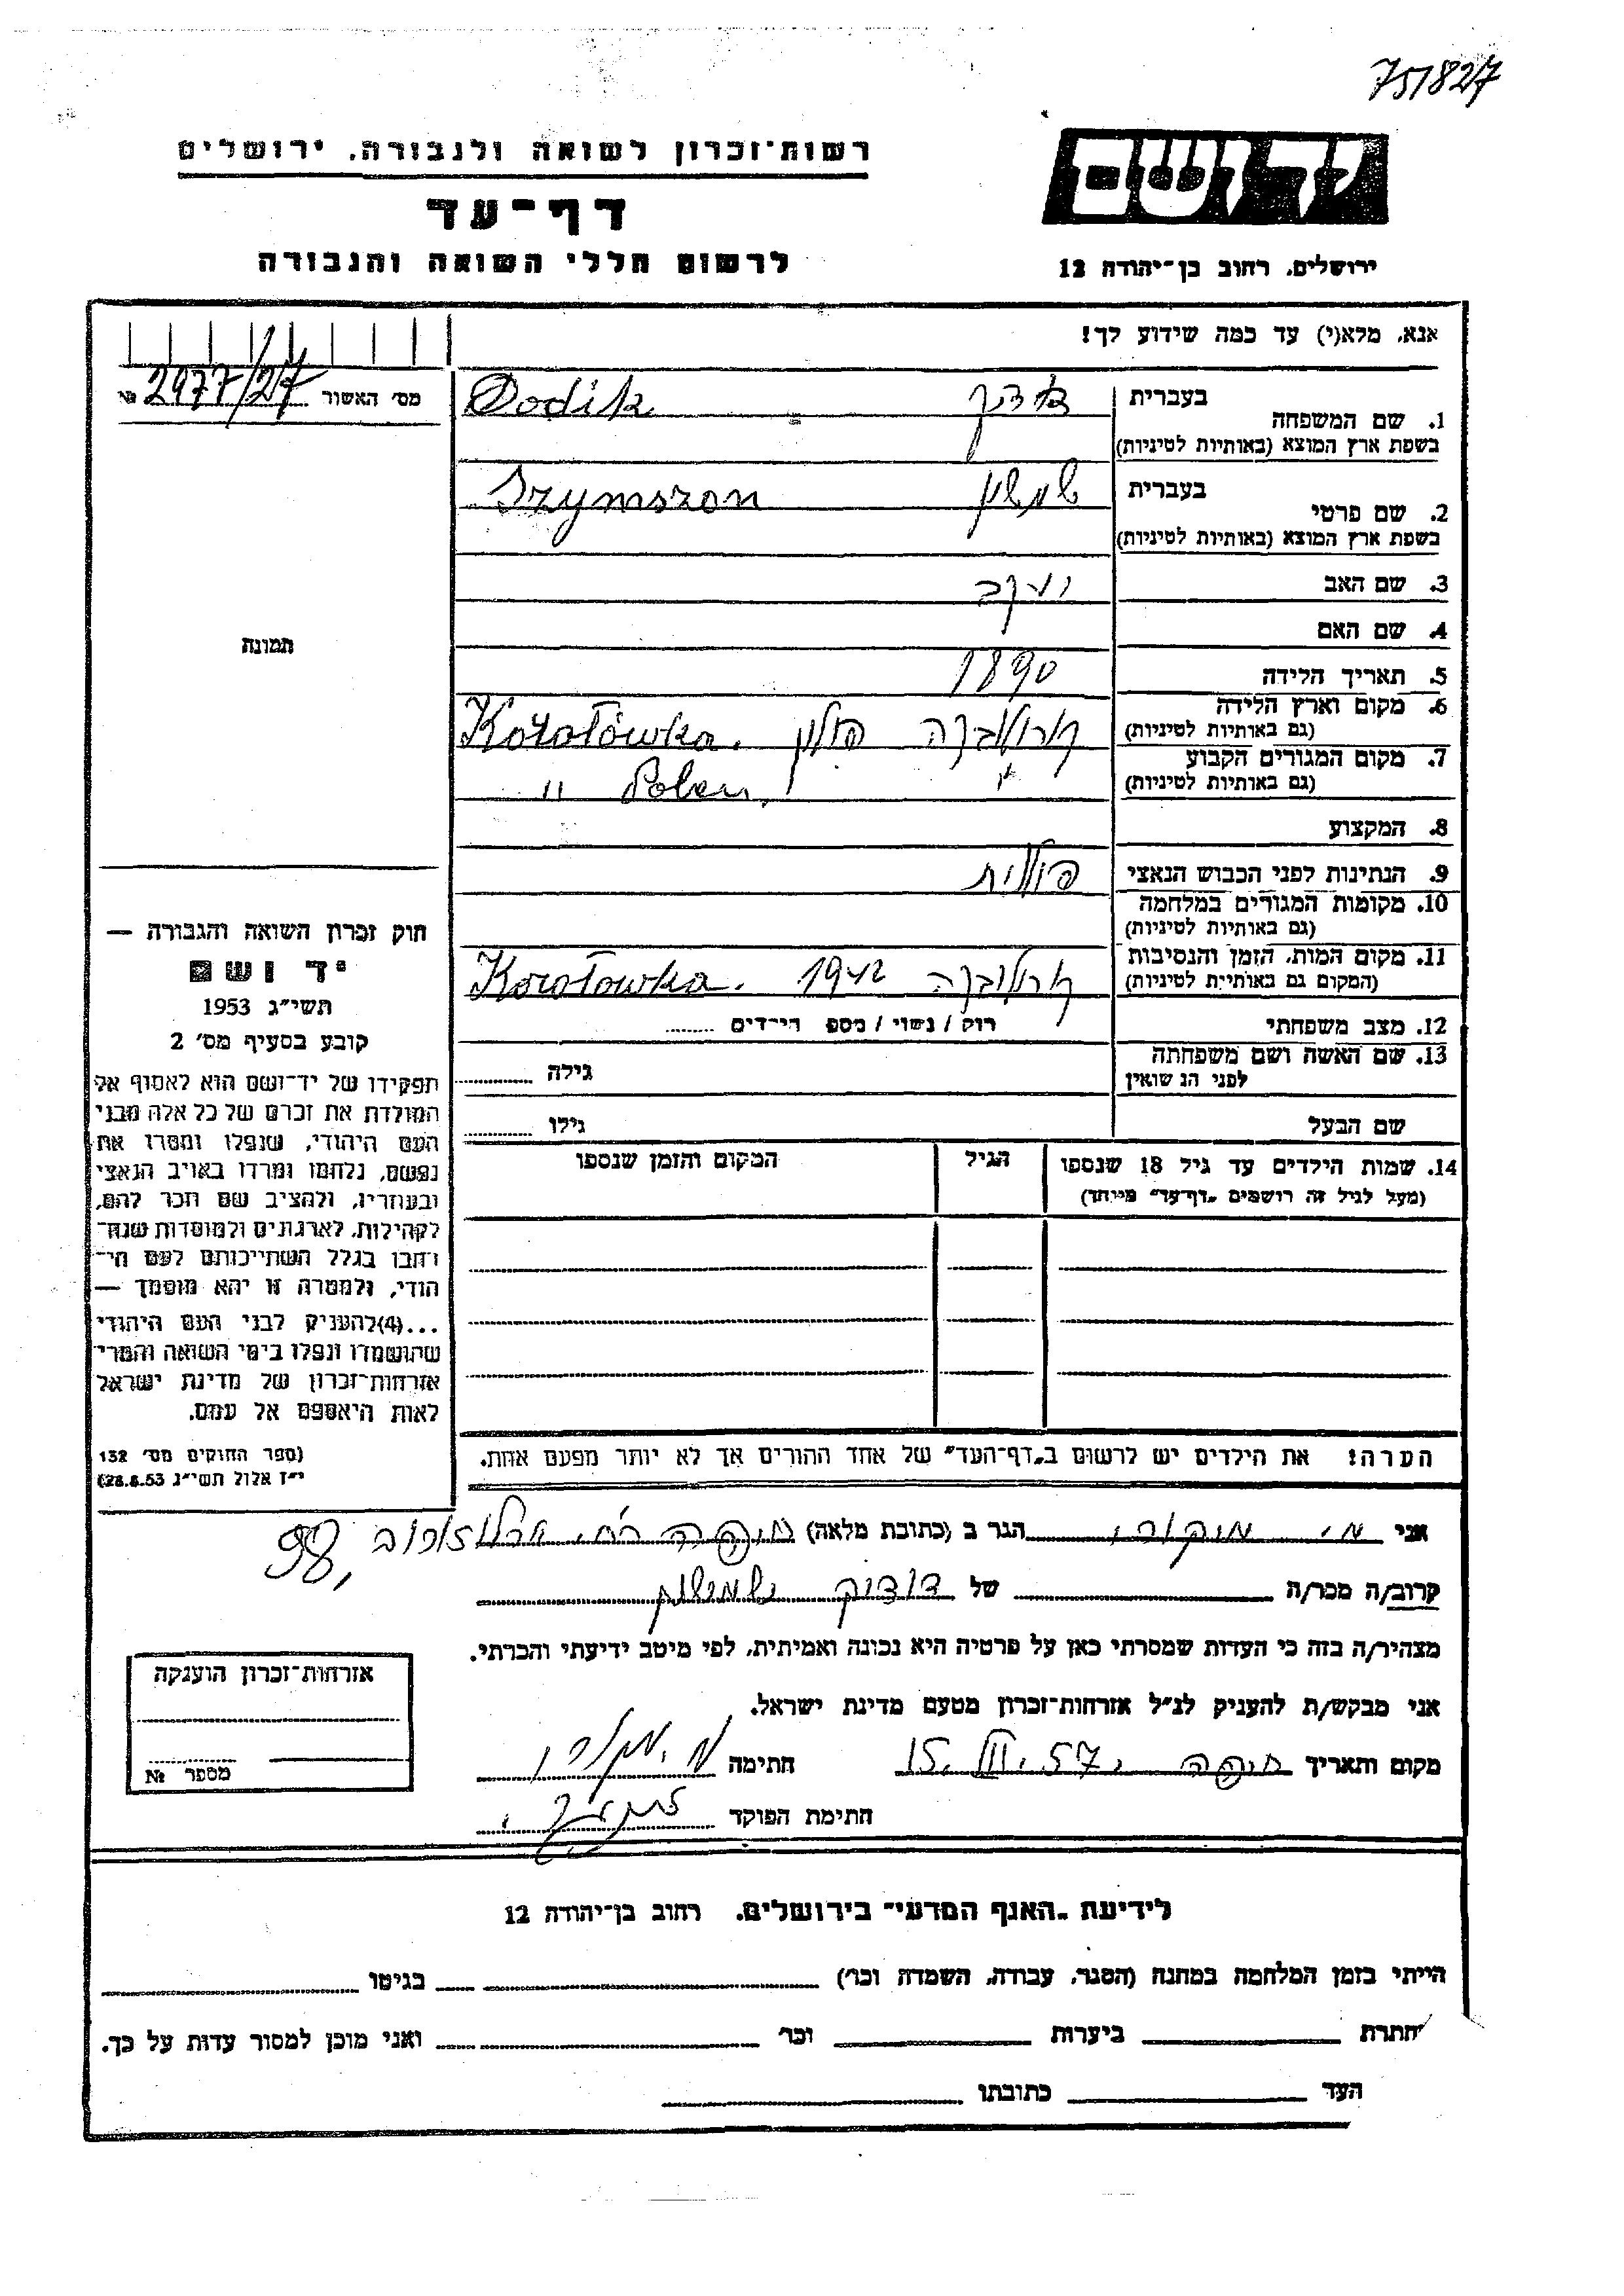 751827
רשות־זכרון לשואה ולגבורה, ירושלים
יד ושם
דף־עד
לרשום חללי השואה והגבורה
ירושלים, רחוב בן־יהודה 12
אנא, מלא(י) עד כמה שידוע לך!
מס׳ האשור 2977/27 №
בעברית
1. שם המשפחה Dodik
בשפת ארץ המוצא (באותיות לטיניות)
בעברית שמשון Szymszon
2. שם פרטי
בשפת ארץ המוצא (באותיות לטיניות)
3. שם האב יעקב
4. שם האם
תמונה
5. תאריך הלידה 1890
6. מקום וארץ הלידה
(גם באותיות לטיניות) פולין Korolówka.
7. מקום המגורים הקבוע
(גם באותיות לטיניות) " Polen, "
8. המקצוע
9. הנתינות לפני הכבוש הנאצי פולנית
10. מקומות המגורים במלחמה
(גם באותיות לטיניות)
11. מקום המות, הזמן והנסיבות
(המקום גם באותיות לטיניות) 1942 Korolowka.
12. מצב משפחתי רוק / נשוי / מספ הילדים
13. שם האשה ושם משפחתה
לפני הנישואין גילה
שם הבעל גילו
14. שמות הילדים עד גיל 18 שנספו הגיל המקום והזמן שנספו
(מעל לגיל זה רושמים „דף־עד״ מיוחד)
חוק זכרון השואה והגבורה —
יד ושם
תשי״ג 1953
קובע בסעיף מס׳ 2
תפקידו של יד־ושם הוא לאסוף אל
המולדת את זכרם של כל אלה מבני
העם היהודי, שנפלו ומסרו את
נפשם, נלחמו ומרדו באויב הנאצי
ובעוזריו, ולהציב שם וזכר להם,
לקהילות, לארגונים ולמוסדות שנח־
רבו בגלל השתייכותם לעם הי־
הודי, ולמטרה זו יהא מוסמך —
...(4) להעניק לבני העם היהודי
שהושמדו ונפלו בימי השואה והמרי
אזרחות־זכרון של מדינת ישראל
לאות היאספם אל עמם.
(ספר החוקים מס׳ 132
י״ז אלול תשי״ג 28.8.53)
הערה! את הילדים יש לרשום ב„דף־העד״ של אחד ההורים אך לא יותר מפעם אחת.
אני הגר ב (כתובת מלאה) חיפה רח׳ ארלוזורוב 98,
קרוב/ה מכר/ה של דודיק שמשון
מצהיר/ה בזה כי העדות שמסרתי כאן על פרטיה היא נכונה ואמיתית, לפי מיטב ידיעתי והכרתי.
אני מבקש/ת להעניק לנ״ל אזרחות־זכרון מטעם מדינת ישראל.
מקום ותאריך חיפה, 15. III. 57 חתימה
חתימת הפוקד
אזרחות־זכרון הוענקה
מספר №
לידיעת „האגף המדעי״ בירושלים. רחוב בן־יהודה 12
הייתי בזמן המלחמה במחנה (הסגר, עבודה, השמדה וכו׳) בגיטו
חתרת ביערות וכו׳ ואני מוכן למסור עדות על כך.
העד כתובתו